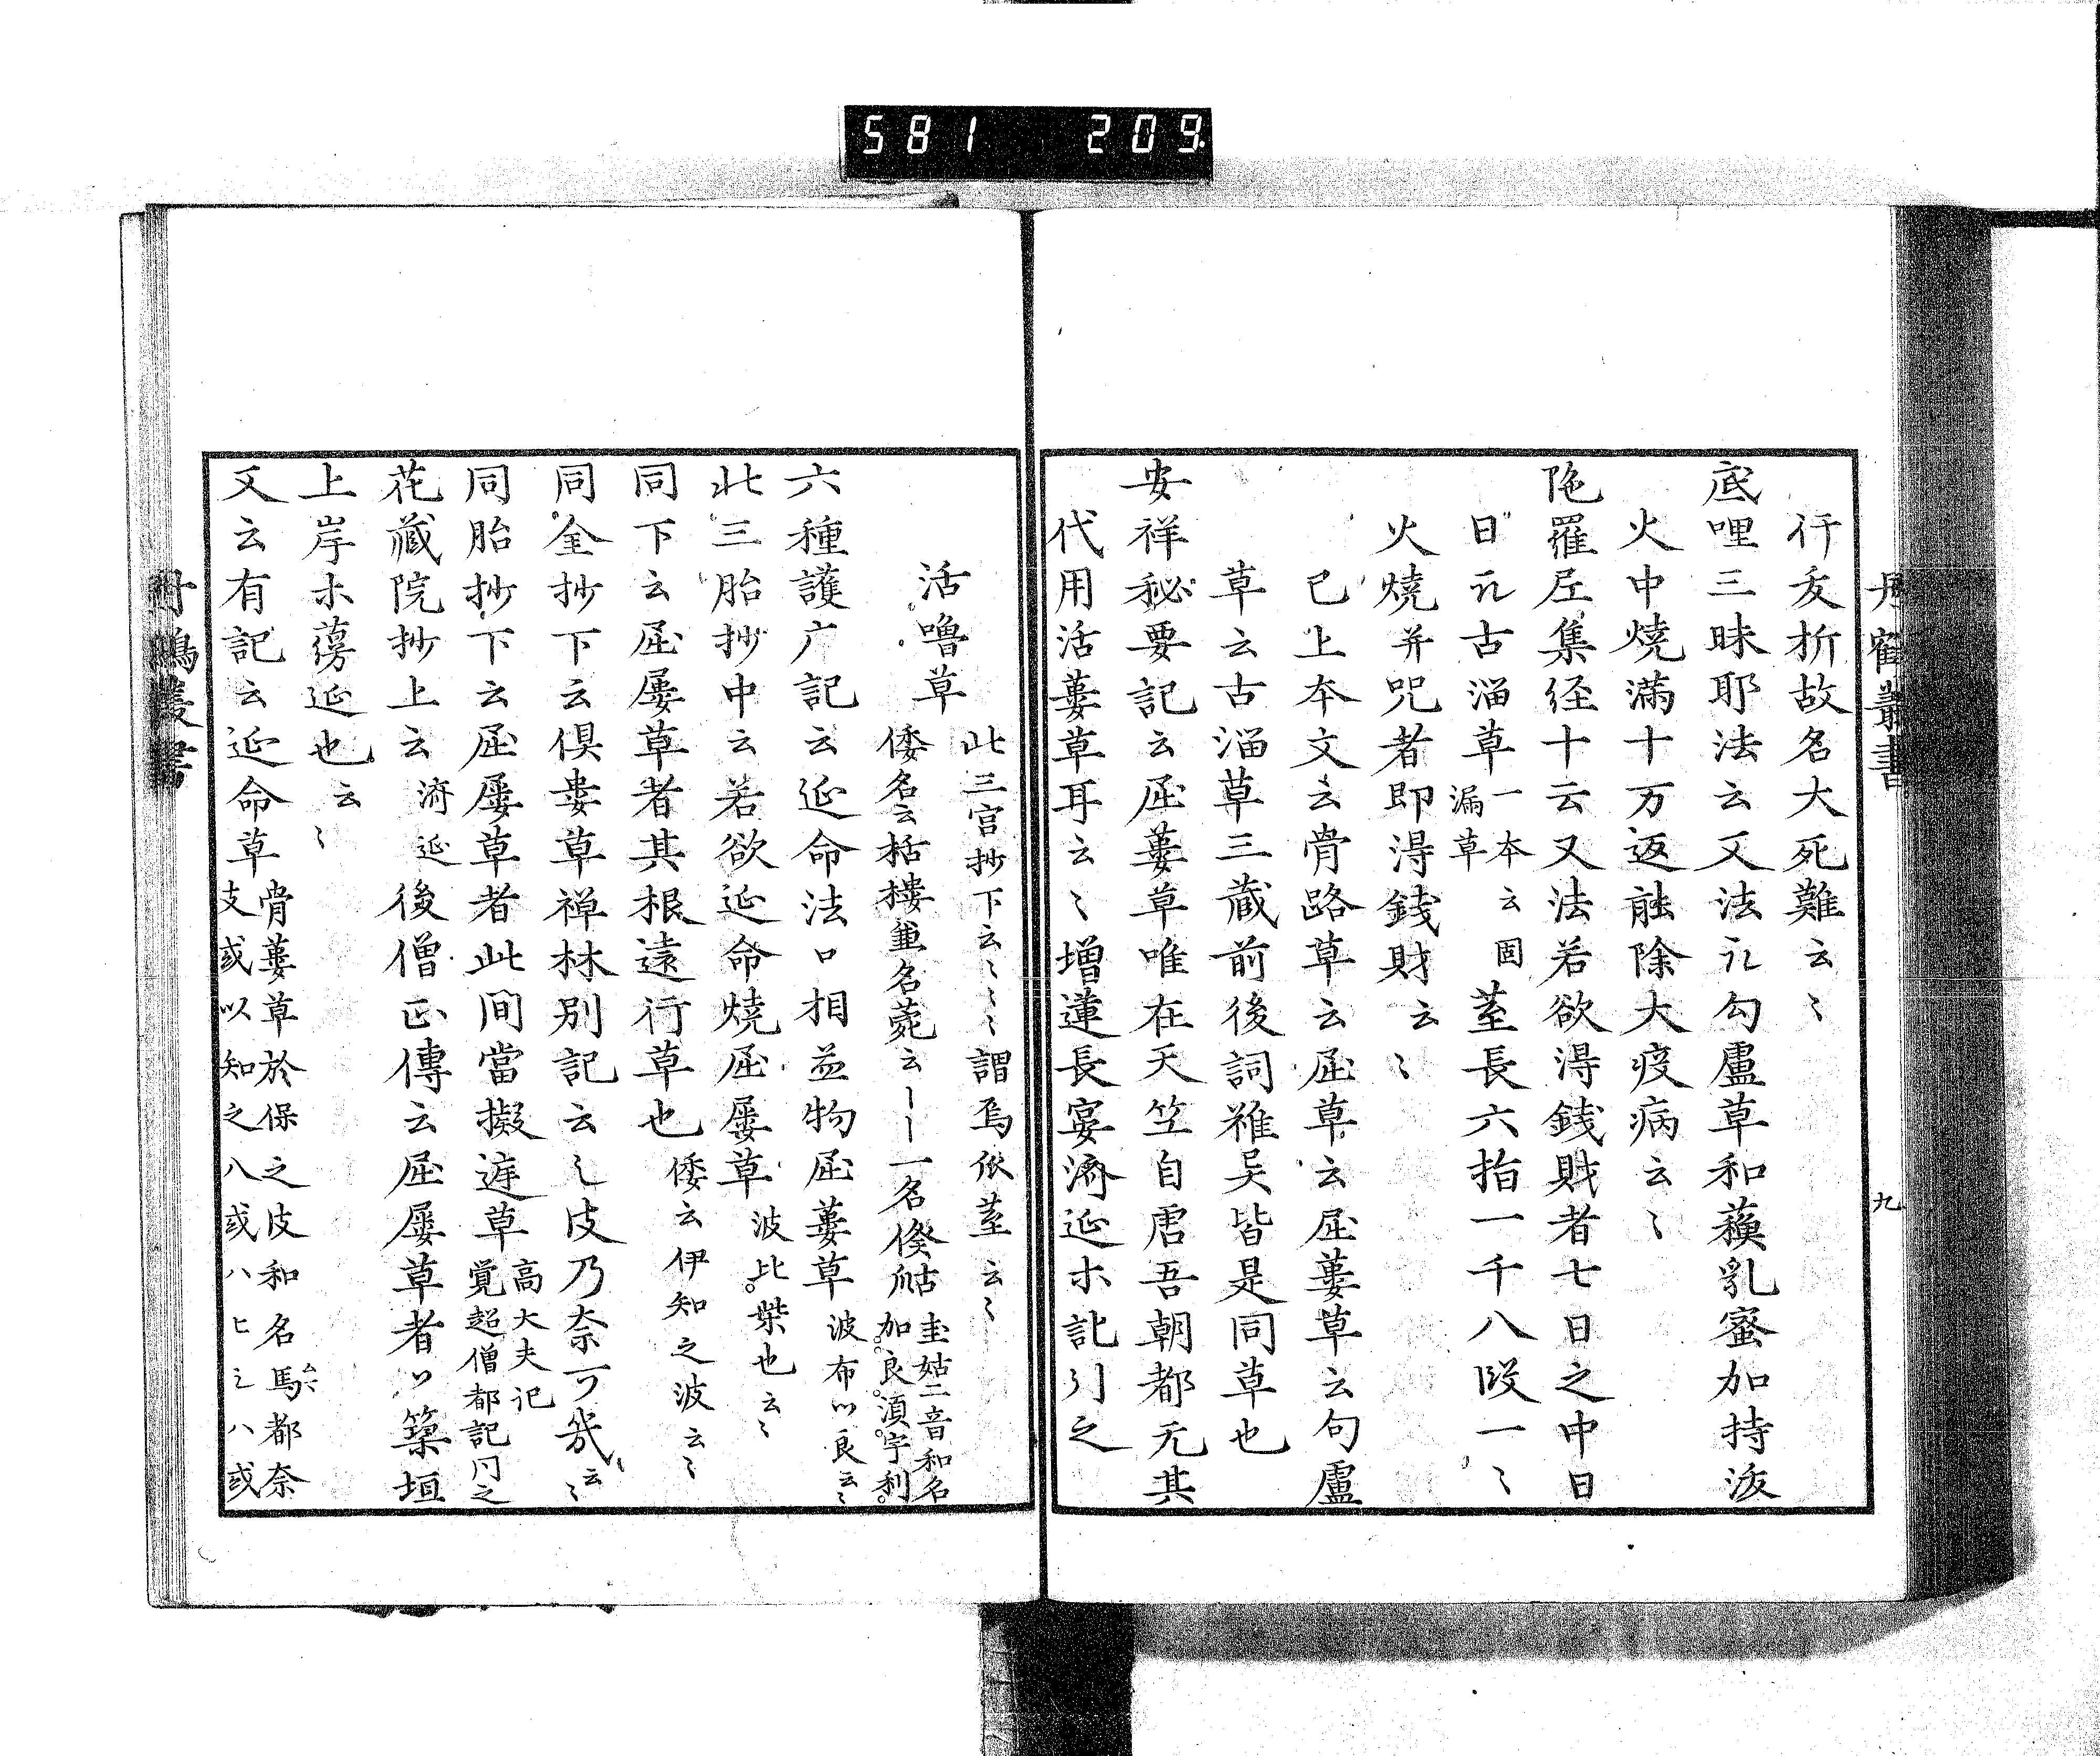 581 209
丹鶴叢書
九
行夭折故名大死難云〻
底哩三昧耶法云又法取勾盧草和蘓乳蜜加持淡
火中燒滿十万返能除大疫病云〻
陁羅尼集経十云又法若欲得銭財者七日之中日
日取古溜草一本云固漏草莖長六指一千八段一〻
火燒并咒者即得錢財云〻
已上本文云骨路草云屈草云屈蔞草云句盧
草云古溜草三蔵前後詞雖異皆是同草也
安祥秘要記云屈蔞草唯在天竺自唐吾朝都无其
代用活蔞草耳云〻增蓮長宴濟延木訖引之
活嚕草
此三宮抄下云〻〻〻謂焉依莖云〻
倭名云栝樓
一名
圭姑二音和名加良須宇利
六種護广記云延命法口相並物屈蔞草波布以良云〻
此三胎抄中云若欲延命燒屈屢草波比柴也云〻
同下云屈屢草者其根遠行草也倭云伊知之波云〻
同金抄下云倶婁草禅林別記云之皮乃奈可幾云〻
同胎抄下云屈屢草者此間當擬遊草高大夫記覚超僧都記同之
花藏院抄上云濟延後僧正傳云屈屢草者以築垣
上岸木蒡延也云〻
又云有記云延命草骨蔞草於保之皮和名馬都奈支或以知之八或ハヒ之ハ或
丹鶴叢書